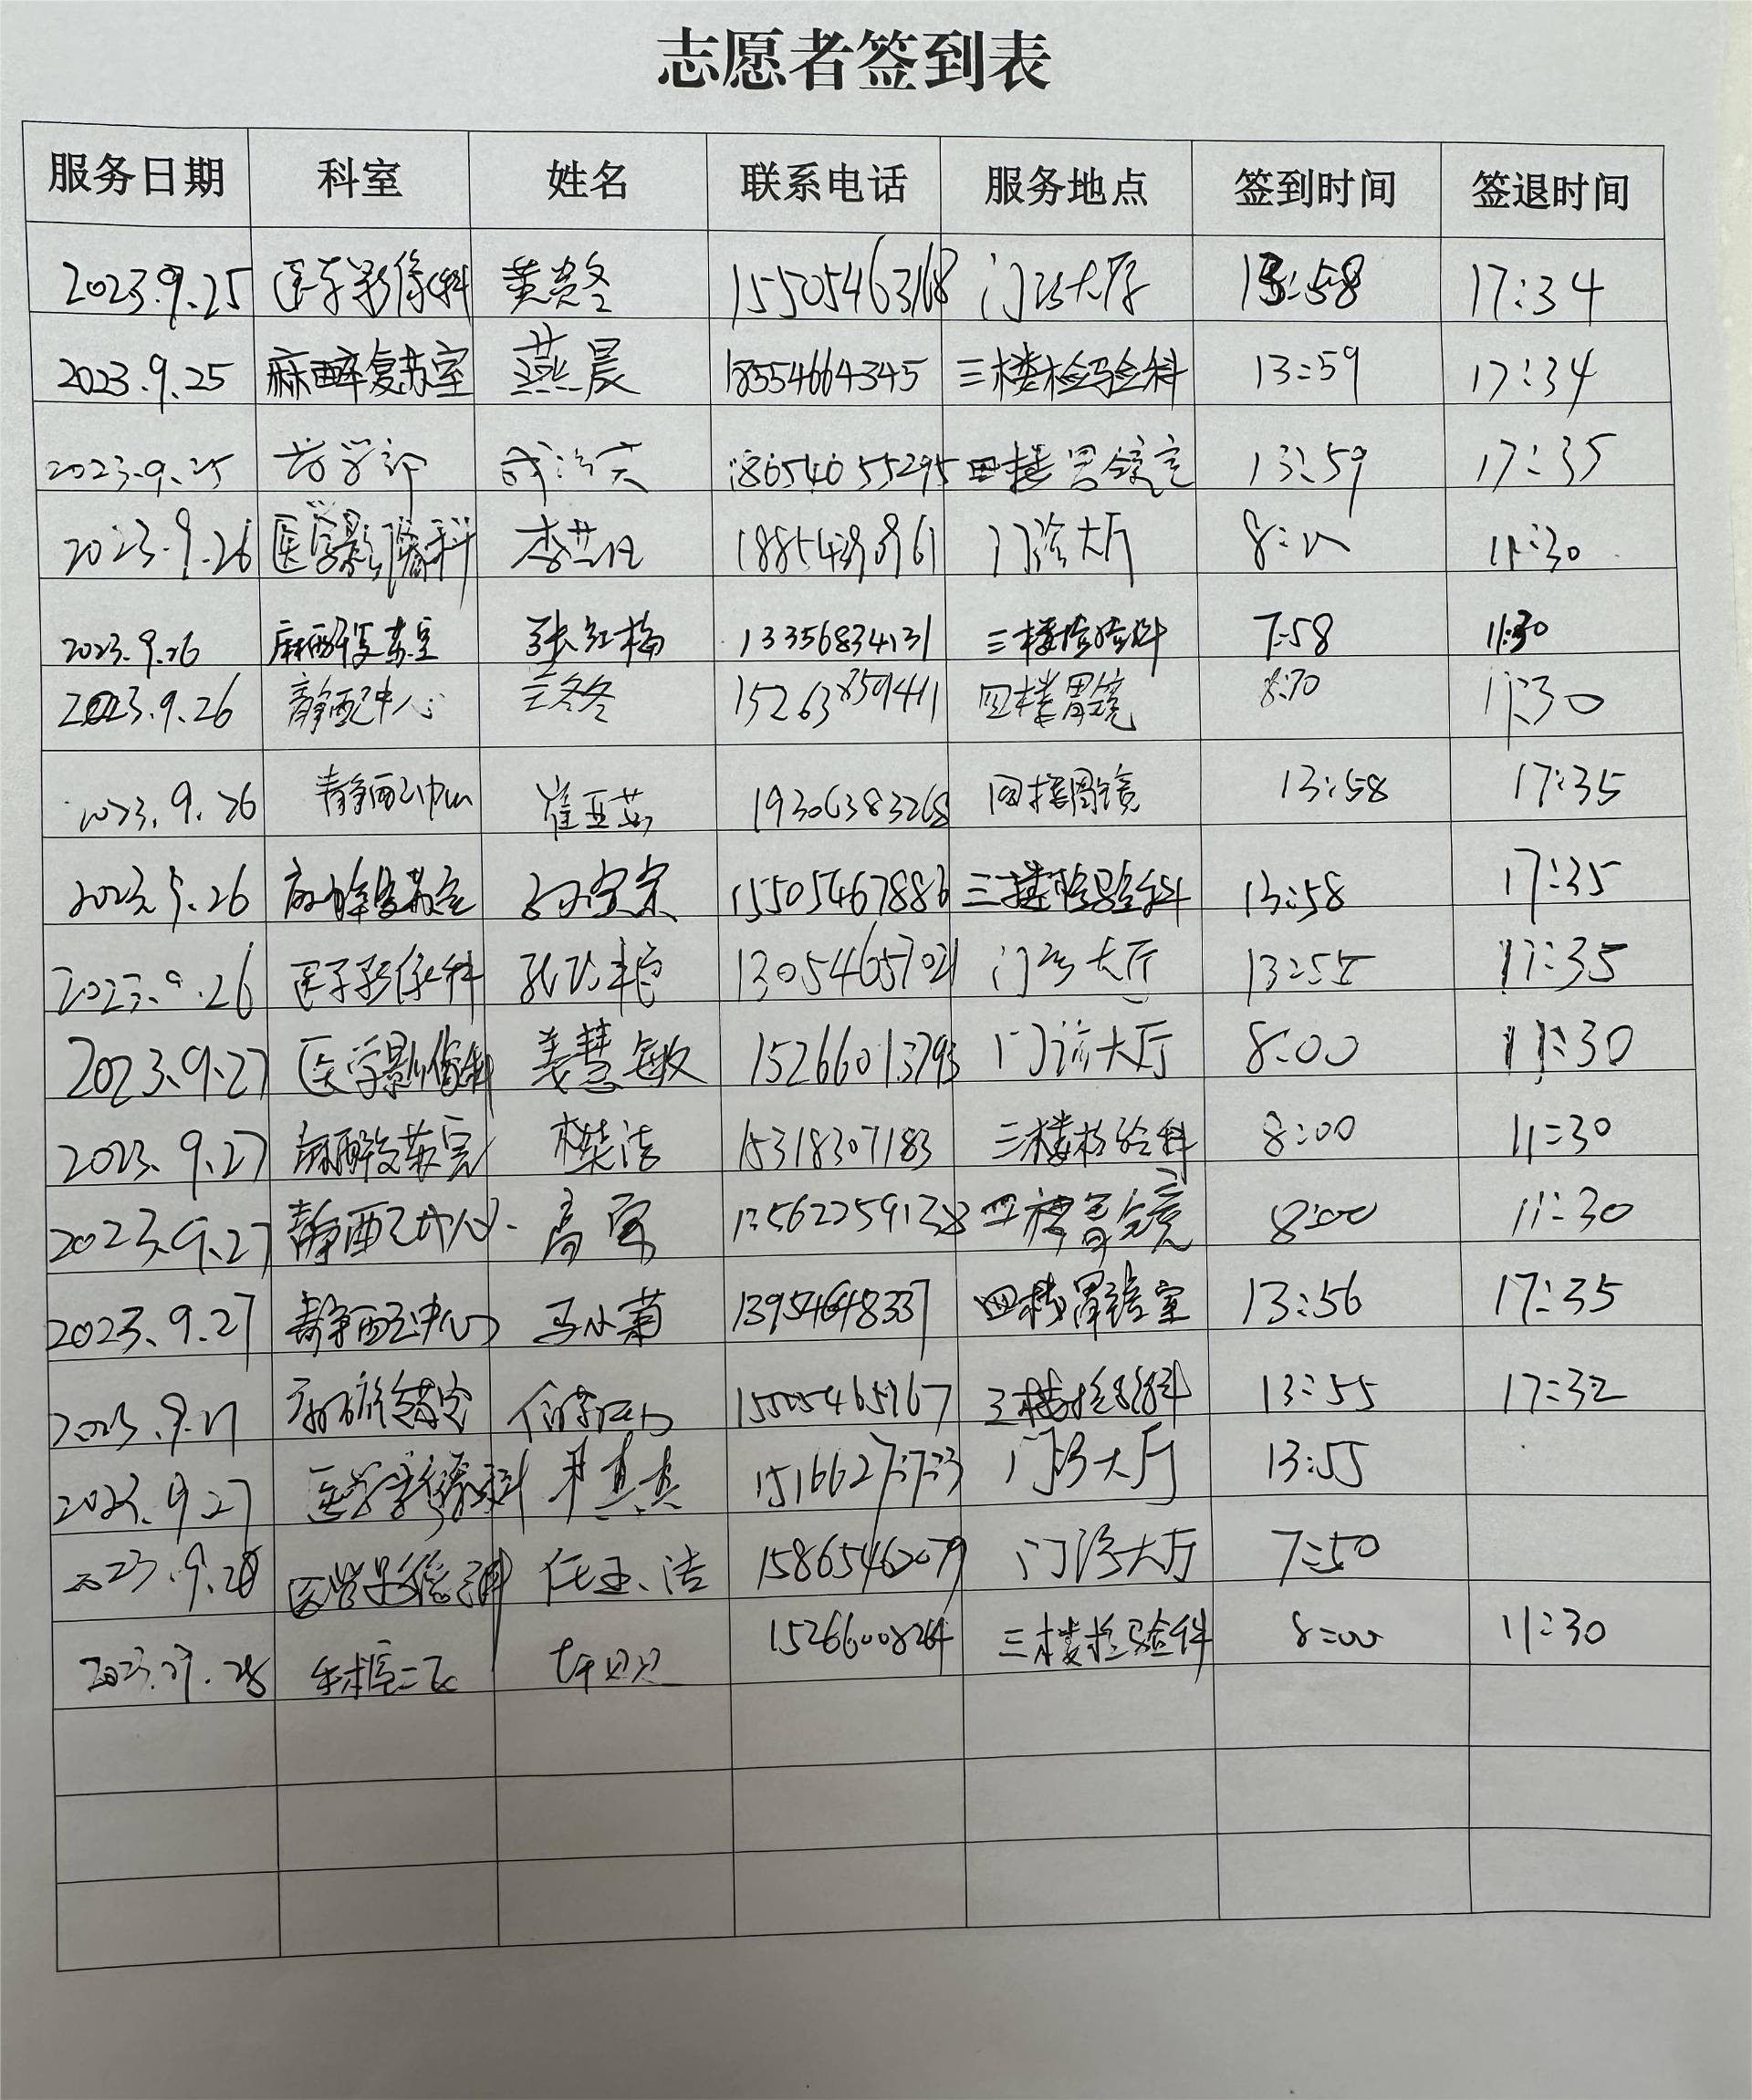 志愿者签到表
服务日期 科室 姓名 联系电话 服务地点 签到时间 签退时间
2023.9.25 医学影像科 黄炎冬 15505463168 门诊大厅 13:58 17:34
2023.9.25 麻醉复苏室 燕晨 18554664345 三楼检验科 13:59 17:34
2023.9.25 药学部 18654055295 四楼胃镜室 13:59 17:35
2023.9.26 医学影像科 门诊大厅 8:00 11:30
2023.9.26 麻醉复苏室 张红梅 13356834131 三楼检验科 7:58 11:30
2023.9.26 静配中心 兰冬冬 15263859411 四楼胃镜 11:30
2023.9.26 静配中心 崔亚茹 19306383268 四楼胃镜 13:58 17:35
2023.9.26 麻醉复苏室 15505467886 三楼检验科 13:58 17:35
2023.9.26 医学影像科 13054657021 门诊大厅 13:55 17:35
2023.9.27 医学影像科 姜慧敏 15266013793 门诊大厅 8:00 11:30
2023.9.27 麻醉复苏室 樊洁 15318307183 三楼检验科 8:00 11:30
2023.9.27 静配中心 高军 13562259138 四楼胃镜 8:00 11:30
2023.9.27 静配中心 马小菊 13954648337 四楼胃镜室 13:56 17:35
2023.9.27 麻醉复苏室 15505465967 三楼检验科 13:55 17:32
2023.9.27 医学影像科 门诊大厅 13:55
2023.9.28 医学影像科 任玉洁 15865462079 门诊大厅 7:50
2023.9.28 15266008264 三楼检验科 8:00 11:30